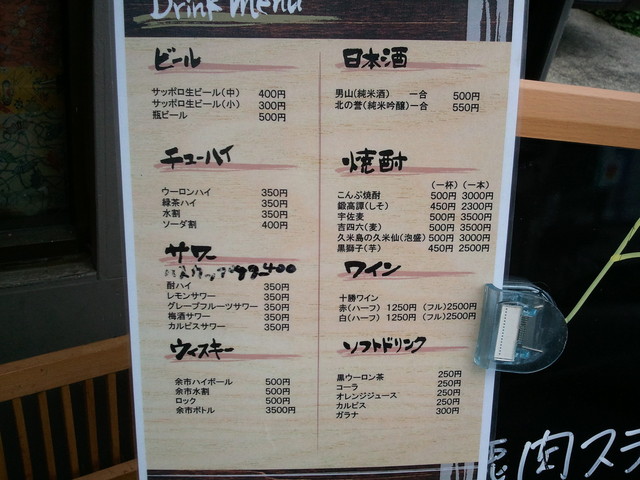 Drink Menu
ビール
サッポロ生ビール(中) 400円
サッポロ生ビール(小) 300円
瓶ビール 500円
チューハイ
ウーロンハイ 350円
緑茶ハイ 350円
水割 350円
ソーダ割 400円
サワー
400
酎ハイ 350円
レモンサワー 350円
グレープフルーツサワー 350円
梅酒サワー 350円
カルピスサワー 350円
ウィスキー
余市ハイボール 500円
余市水割 500円
ロック 500円
余市ボトル 3500円
日本酒
男山(純米酒) 一合 500円
北の誉(純米吟醸)一合 550円
焼酎
(一杯) (一本)
こんぶ焼酎 500円 3000円
鍛高譚(しそ) 450円 2300円
宇佐麦 500円 3500円
吉四六(麦) 500円 3500円
久米島の久米仙(泡盛) 500円 3000円
黒獅子(芋) 450円 2500円
ワイン
十勝ワイン
赤(ハーフ) 1250円 (フル)2500円
白(ハーフ) 1250円 (フル)2500円
ソフトドリンク
黒ウーロン茶 250円
コーラ 250円
オレンジジュース 250円
カルピス 250円
ガラナ 300円
鹿肉ステ